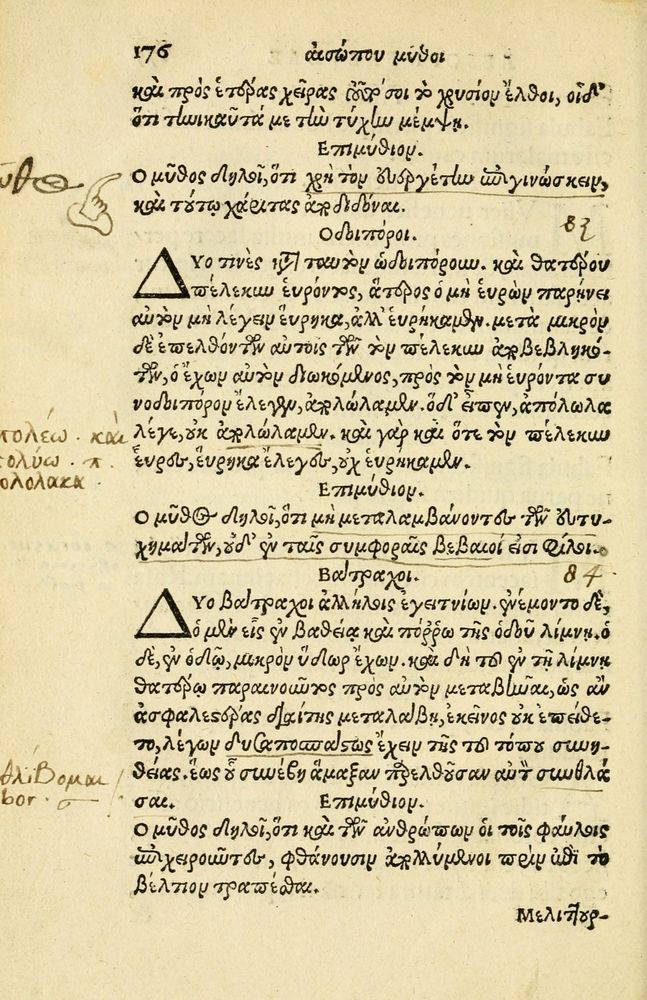 176 αἰσώπου μῦθοι
καὶ πρὸς ἑτέρας χεῖρας τοῦτό σοι τὸ χρυσίον ἔλθοι, οἶδ'
ὅτι πάλιν με τὴν τύχην μέμψῃ.
Επιμύθιον.
Ο μῦθος δηλοῖ, ὅτι χρὴ τὸν εὐεργέτην ἐπιγινώσκειν,
καὶ τούτῳ χάριτας ἀποδιδόναι.
Οδοιπόροι. 83
ΔΥο τινὲς κατὰ ταυτὸν ὡδοιπόρουν. καὶ θατέρου
πέλεκυν εὑρόντος, ἅτερος ὁ μὴ εὑρὼν παρῄνει
αὐτὸν μὴ λέγειν εὕρηκα, ἀλλ' εὑρήκαμεν. μετὰ μικρὸν
δὲ ἐπελθόντων αὐτοῖς τῶν τὸν πέλεκυν ἀποβεβληκό-
των, ὁ ἔχων αὐτὸν διωκόμενος, πρὸς τὸν μὴ εὑρόντα συ
νοδοιπόρον ἔλεγεν, ἀπολώλαμεν. ὁ δ' εἶπεν, ἀπόλωλα
λέγε, οὐκ ἀπολώλαμεν. καὶ γὰρ καὶ ὅτε τὸν πέλεκυν
εὗρες, εὕρηκα ἔλεγες, οὐχ εὑρήκαμεν.
Επιμύθιον.
Ο μῦθος δηλοῖ, ὅτι μὴ μεταλαμβάνοντες τῶν εὐτυ-
χημάτων, οὐδ' ἐν ταῖς συμφοραῖς βέβαιοί εἰσι φίλοι.
Βάτραχοι. 84.
ΔΥο βάτραχοι ἀλλήλοις ἐγειτνίων. ἐνέμοντο δὲ,
ὁ μὲν εἷς ἐν βαθείᾳ καὶ πόῤῥω τῆς ὁδοῦ λίμνῃ. ὁ
δὲ, ἐν ὁδῷ, μικρὸν ὕδωρ ἔχων. καὶ δὴ τοῦ ἐν τῇ λίμνῃ
θατέρῳ παραινοῦντος πρὸς αὐτὸν μεταβῆναι, ὡς ἂν
ἀσφαλεστέρας διαίτης μεταλάβῃ, ἐκεῖνος οὐκ ἐπείθε-
το, λέγων δυσαποσπάστως ἔχειν τῆς τοῦ τόπου συνη-
θείας. ἕως οὗ συνέβη ἅμαξαν παρελθοῦσαν αὐτὸν συνθλά
σαι. Επιμύθιον.
Ο μῦθος δηλοῖ, ὅτι καὶ τῶν ἀνθρώπων οἱ τοῖς φαύλοις
ἐπιχειροῦντες, φθάνουσιν ἀπολλύμενοι πρὶν ἐπὶ τὸ
βέλτιον τραπέσθαι.
Μελιτουρ-
πολέω. καὶ